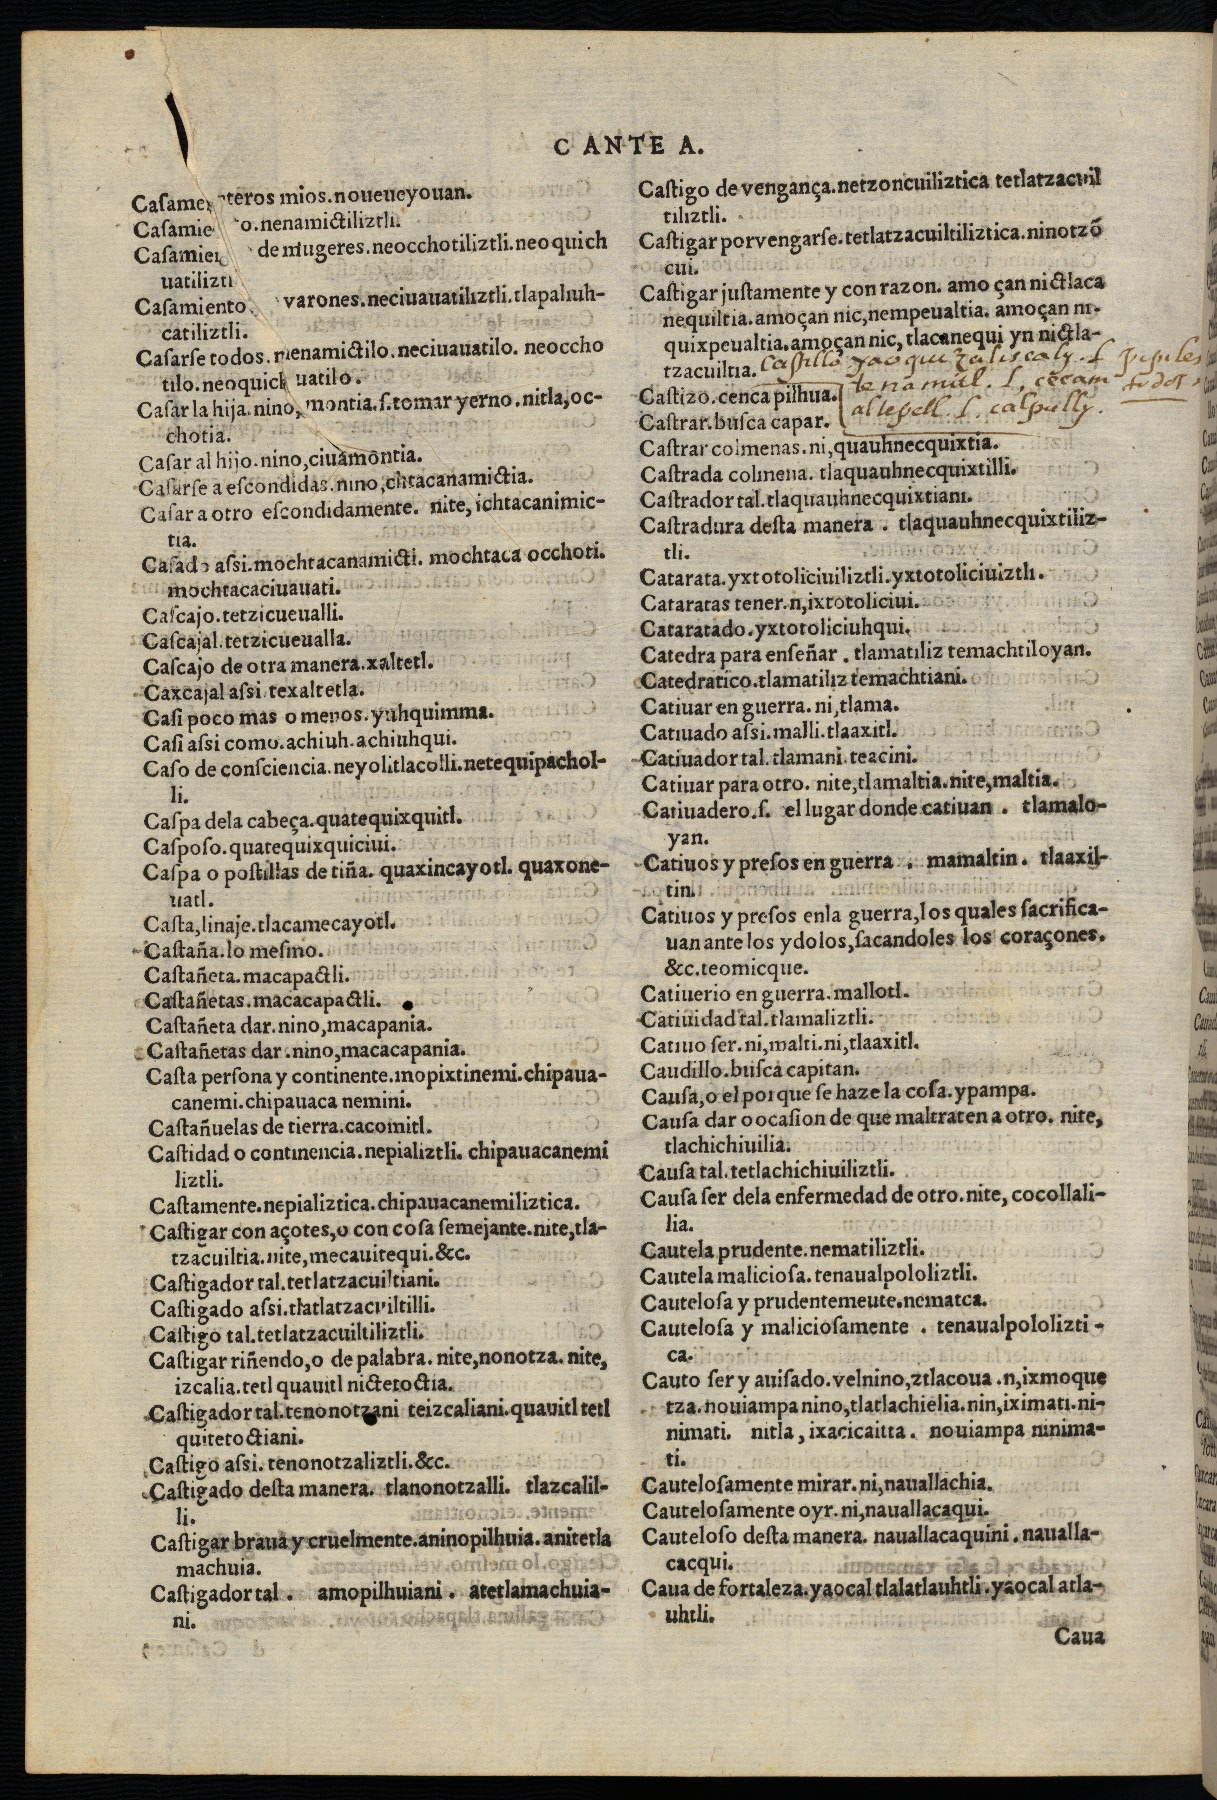 C ANTE A.
Caſame nteros mios.noueueyouan.
Caſamie to.nenamictiliztli.
Caſamien de mugeres.neocchotiliztli.neoquich
uatilizti
Caſamiento. varones.neciuauatiliztli.tlapaliuh-
catiliztli.
Caſarſe todos.nenamictilo.neciuauatilo. neoccho
tilo.neoquich uatilo.
Caſar la hija.nino,montia.ſ.tomar yerno.nitla,oc-
chotia.
Caſar al hijo.nino,ciuamōntia.
Caſarſe a eſcondidas.nino,chtacanamictia.
Caſar a otro eſcondidamente. nite, ichtacanimic-
tia.
Caſado aſsi.mochtacanamicti. mochtaca occhoti.
mochtacaciuauati.
Caſcajo.tetzicueualli.
Caſcajal.tetzicueualla.
Caſcajo de otra manera.xaltetl.
Caxcajal aſsi.texaltetla.
Caſi poco mas o menos.yuhquimma.
Caſi aſsi como.achiuh.achiuhqui.
Caſo de conſciencia.neyolitlacolli.netequipachol-
li.
Caſpa dela cabeça.quatequixquitl.
Caſpoſo.quatequixquiciui.
Caſpa o poſtillas de tiña. quaxincayotl. quaxone-
uatl.
Caſta,linaje.tlacamecayotl.
Caſtaña.lo meſmo.
Caſtañeta.macapactli.
Caſtañetas.macacapactli.
Caſtañeta dar.nino,macapania.
Caſtañetas dar.nino,macacapania.
Caſta perſona y continente.mopixtinemi.chipaua-
canemi.chipauaca nemini.
Caſtañuelas de tierra.cacomitl.
Caſtidad o continencia.nepializtli. chipauacanemi
liztli.
Caſtamente.nepializtica.chipauacanemiliztica.
Caſtigar con açotes,o con coſa ſemejante.nite,tla-
tzacuiltia.nite,mecauitequi.&c.
Caſtigador tal.tetlatzacuiltiani.
Caſtigado aſsi.tlatlatzacuiltilli.
Caſtigo tal.tetlatzacuiltiliztli.
Caſtigar riñendo,o de palabra. nite,nonotza. nite,
izcalia.tetl quauitl nictetoctia.
Caſtigador tal.tenonotzani teizcaliani.quauitl tetl
quitetoctiani.
Caſtigo aſsi. tenonotzaliztli.&c.
Caſtigado deſta manera. tlanonotzalli. tlazcalil-
li.
Caſtigar braua y cruelmente.aninopilhuia.anitetla
machuia.
Caſtigador tal . amopilhuiani . atetlamachuia-
ni.
Caſtigo de vengança.netzoncuiliztica tetlatzacuil
tiliztli.
Caſtigar por vengarſe.tetlatzacuiltiliztica.ninotzō
cui.
Caſtigar juſtamente y con razon. amo çan nictlaca
nequiltia.amoçan nic,nempeualtia. amoçan ni-
quixpeualtia.amoçan nic, tlacanequi yn nictla-
tzacuiltia. caſtillo yaoquizaliscaly. ſ
tenamitl. ſ. cēcam todos
Caſtizo.cenca pilhua.
altepetl. ſ. calpully.
Caſtrar.buſca capar.
Caſtrar colmenas.ni,quauhnecquixtia.
Caſtrada colmena. tlaquauhnecquixtilli.
Caſtrador tal.tlaquauhnecquixtiani.
Caſtradura deſta manera . tlaquauhnecquixtiliz-
tli.
Catarata.yxtotoliciuiliztli.yxtotoliciuiztli.
Cataratas tener.n,ixtotoliciui.
Cataratado.yxtotoliciuhqui.
Catedra para enſeñar . tlamatiliz temachtiloyan.
Catedratico.tlamatiliz temachtiani.
Catiuar en guerra. ni,tlama.
Catiuado aſsi.malli.tlaaxitl.
Catiuador tal.tlamani.teacini.
Catiuar para otro. nite,tlamaltia.nite,maltia.
Catiuadero.ſ. el lugar donde catiuan . tlamalo-
yan.
Catiuos y preſos en guerra . mamaltin . tlaaxil-
tin.
Catiuos y preſos enla guerra,los quales ſacrifica-
uan ante los ydolos,ſacandoles los coraçones.
&c.teomicque.
Catiuerio en guerra.mallotl.
Catiuidad tal.tlamaliztli.
Catiuo ſer.ni,malti.ni,tlaaxitl.
Caudillo.buſca capitan.
Cauſa,o el porque ſe haze la coſa.ypampa.
Cauſa dar o ocaſion de que maltraten a otro. nite,
tlachichiuilia.
Cauſa tal.tetlachichiuiliztli.
Cauſa ſer dela enfermedad de otro.nite, cocollali-
lia.
Cautela prudente.nematiliztli.
Cautela malicioſa.tenaualpololiztli.
Cauteloſa y prudentemeute.nematca.
Cauteloſa y malicioſamente . tenaualpololizti-
ca.
Cauto ſer y auiſado.velnino,ztlacoua .n,ixmoque
tza.nouiampa nino,tlatlachielia.nin,iximati.ni-
nimati. nitla, ixacicaitta. nouiampa ninima-
ti.
Cauteloſamente mirar.ni,nauallachia.
Cauteloſamente oyr.ni,nauallacaqui.
Cauteloſo deſta manera. nauallacaquini. naualla-
cacqui.
Caua de fortaleza.yaocal tlalatlauhtli.yaocal atla-
uhtli.
Caua